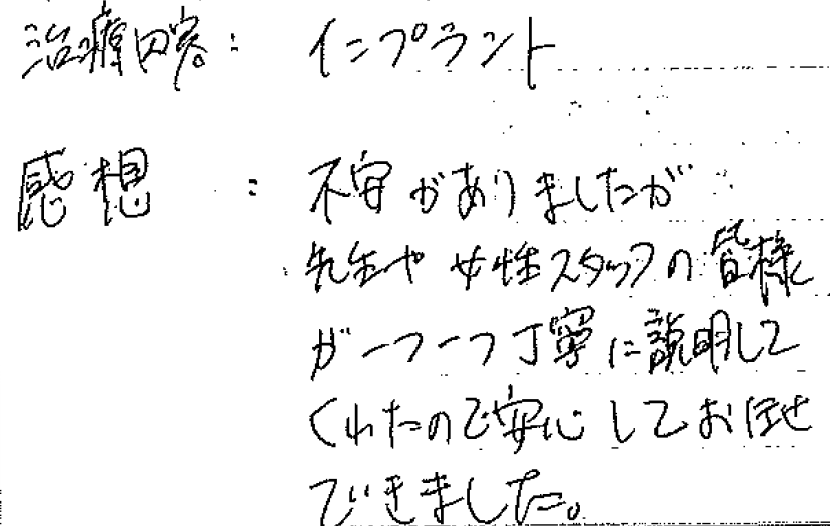 治療内容： インプラント
感想 ： 不安がありましたが
先生や女性スタッフの皆様
が一つ一つ丁寧に説明して
くれたので安心してお任せ
できました。